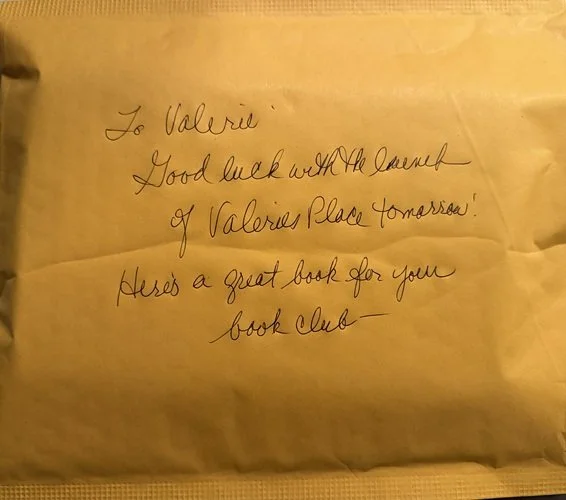 To Valerie
Good luck with the launch
of Valeries Place tomorrow!
Here's a great book for your
book club—